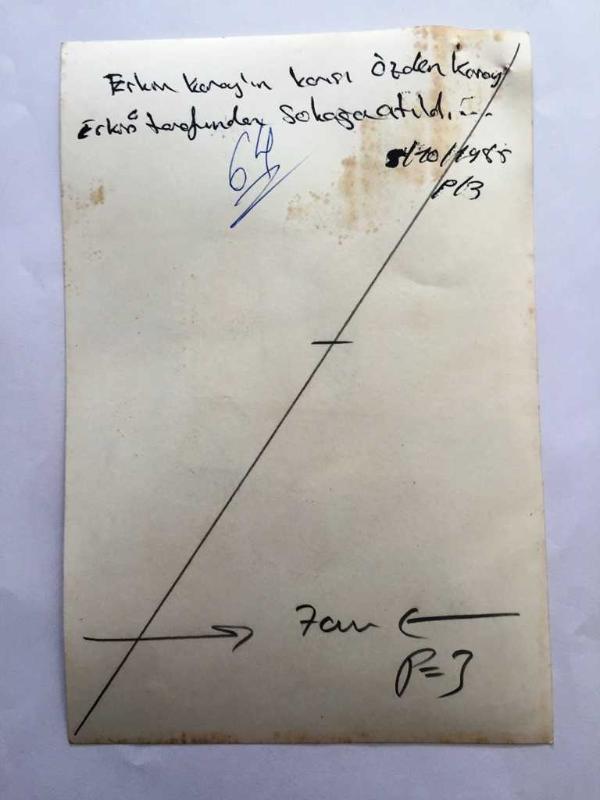 Erkin Koray'ın karısı Özden Koray
Erkin tarafından sokağa atıldı...
/10/1985
P/3
64
7cm
P=3